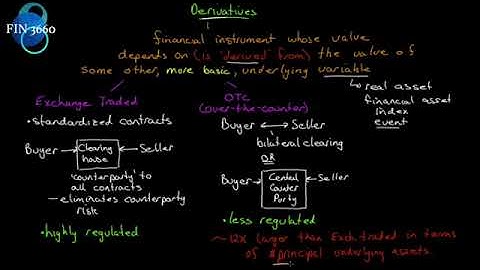 FIN 3660
Derivatives
financial instrument whose value
depends on (is 'derived' from) the value of
some other, more basic, underlying variable
real asset
financial asset
index
event
Exchange Traded
• standardized contracts
Buyer → Clearing house ← Seller
'counterparty' to
all contracts
— eliminates counterparty
risk
• highly regulated
OTC
(over-the-counter)
Buyer ↔ Seller
bilateral clearing
OR
Buyer → Central Counter Party ← Seller
• less regulated
~ 12X larger than Exch. traded in terms
of #principal underlying assets